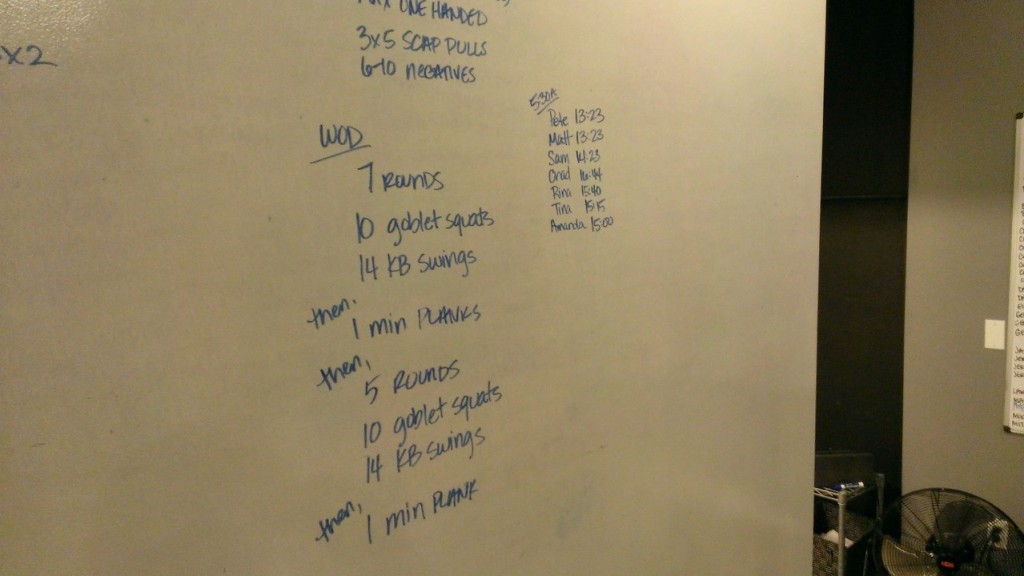 x2
ONE HANDED
3x5 SCAP PULLS
6-10 NEGATIVES
WOD
7 ROUNDS
10 goblet squats
14 KB Swings
then,
1 min PLANKS
then,
5 ROUNDS
10 goblet squats
14 KB Swings
then,
1 min PLANK
5:30A
Pete 13:23
Matt 13:23
Sam 14:23
Chad 16:44
Rina 15:40
Tina 15:15
Amanda 15:00